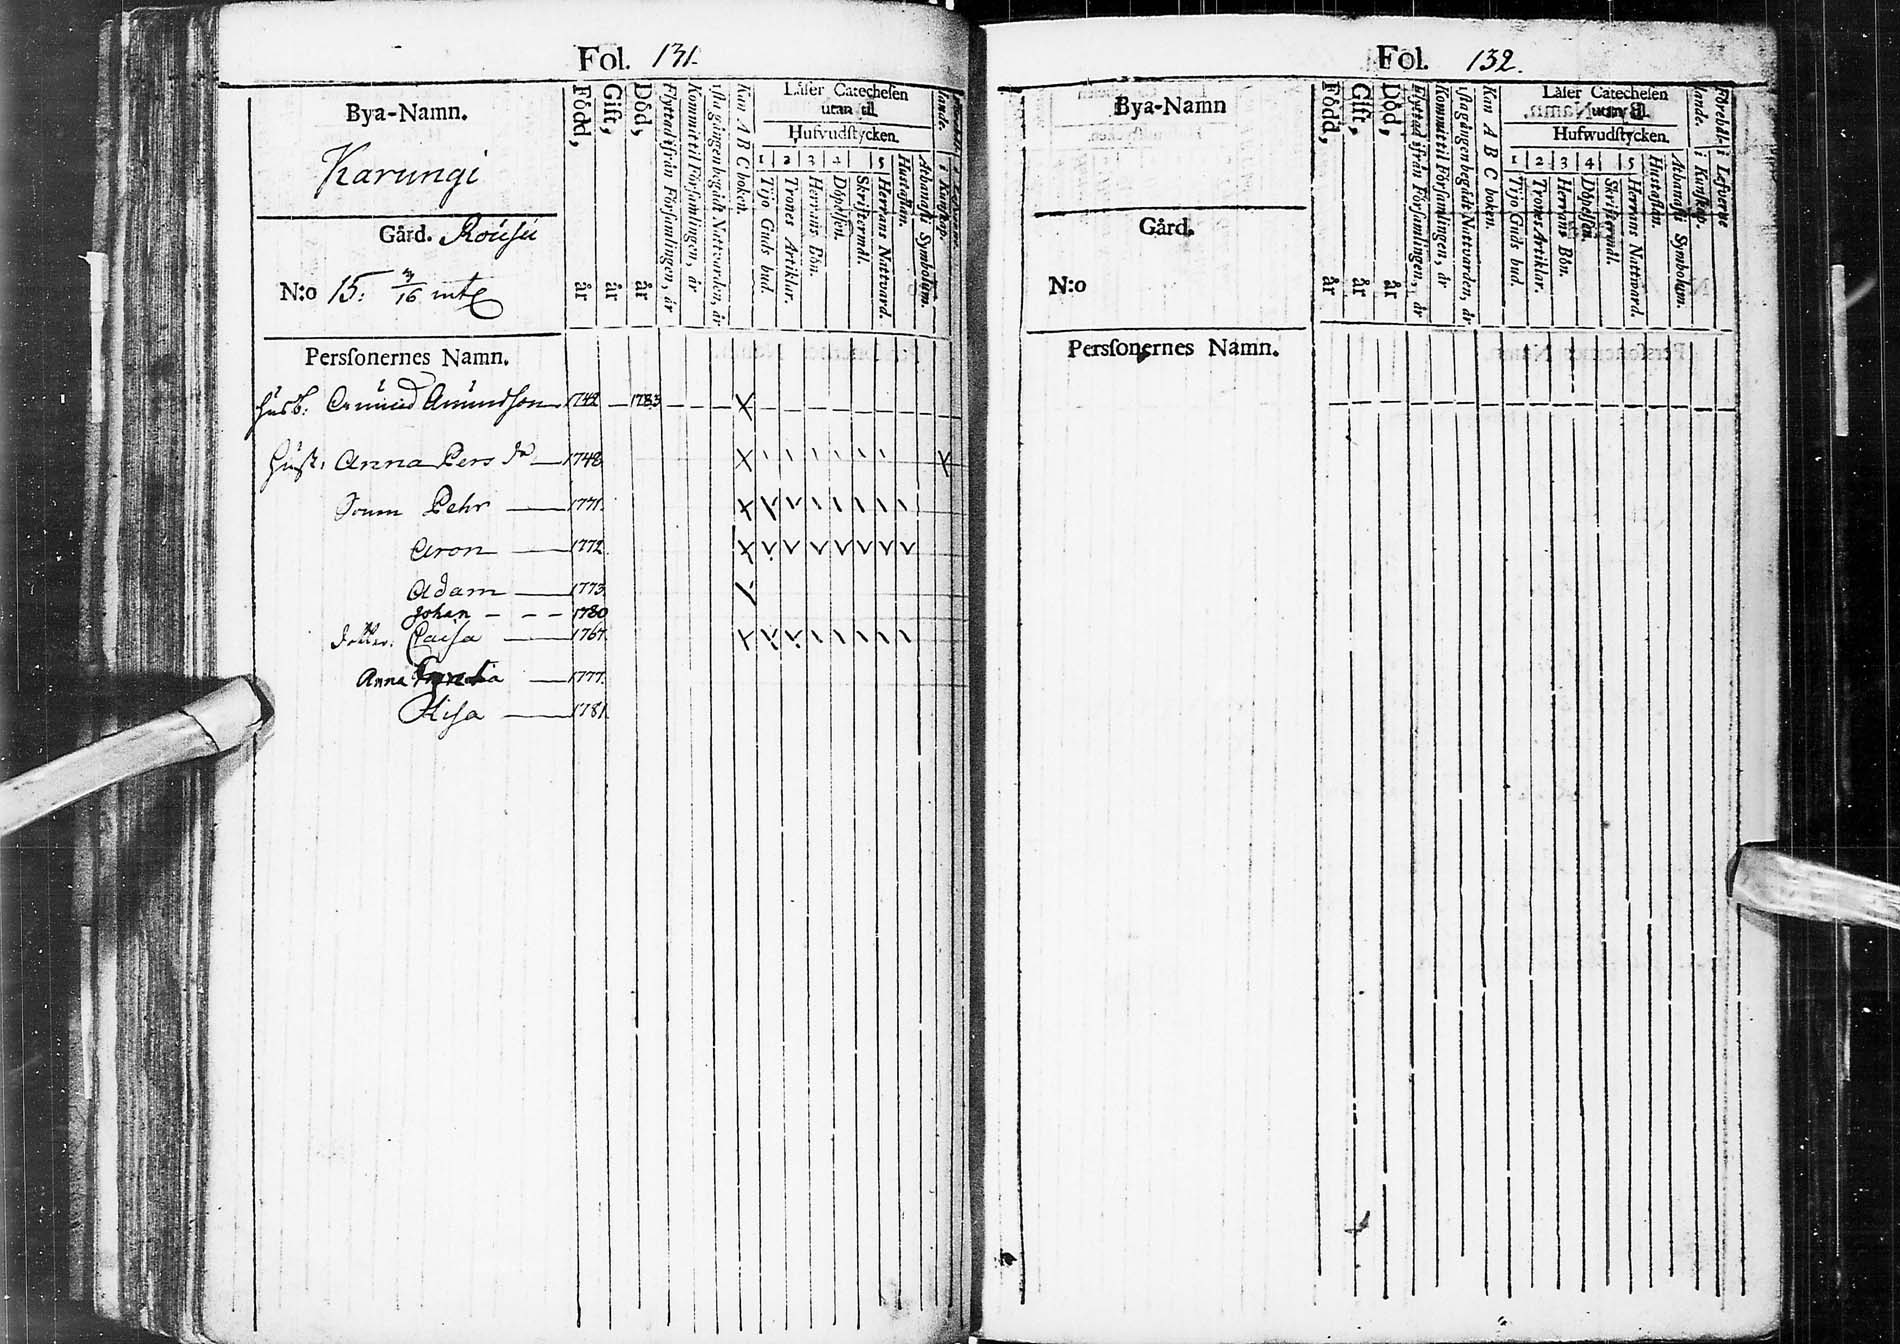 Fol. 131.
Bya-Namn.
Karungi
Gård. Rousu
N:o 15. 3/16 mtl
Född, år
Gift, år
Död, år
Flyttad ifrån Församlingen, år
Kommit til Församlingen, år
1sta gången begådt Nattvarden, år
Kan A B C boken.
Läser Catechesen
utan til.
Hufvudstycken.
1 2 3 4 5
Tijo Guds bud.
Trones Artiklar.
Herrans Bön.
Döpelsen.
Skriftermål.
Herrans Nattvard.
Hustaflan.
Athanasii Symbolum.
lande. i Kunskap.
Personernes Namn.
Husb. Amund Amundson 1742 — 1783 X
Hust. Anna Pers dr 1748 X
Sonen Pehr 1771. X
Aron 1772. X
Adam 1773
Johan 1780
Dotter. Caisa 1767.
Anna 1777.
Lisa 1781
Fol. 132.
Bya-Namn
Gård.
N:o
Född, år
Gift, år
Död, år
Flyttad ifrån Församlingen, år
Kommit til Församlingen, år
1sta gången begådt Nattvarden, år
Kan A B C boken.
Läser Catechesen
utan til.
Hufwudstycken.
1 2 3 4 5
Tijo Guds bud.
Trones Artiklar.
Herrans Bön.
Döpelsen.
Skriftermål.
Herrans Nattward.
Hustaflan.
Athanasii Symbolum.
lande. i Kunskap.
Förehål- i Lefwerne
Personernes Namn.